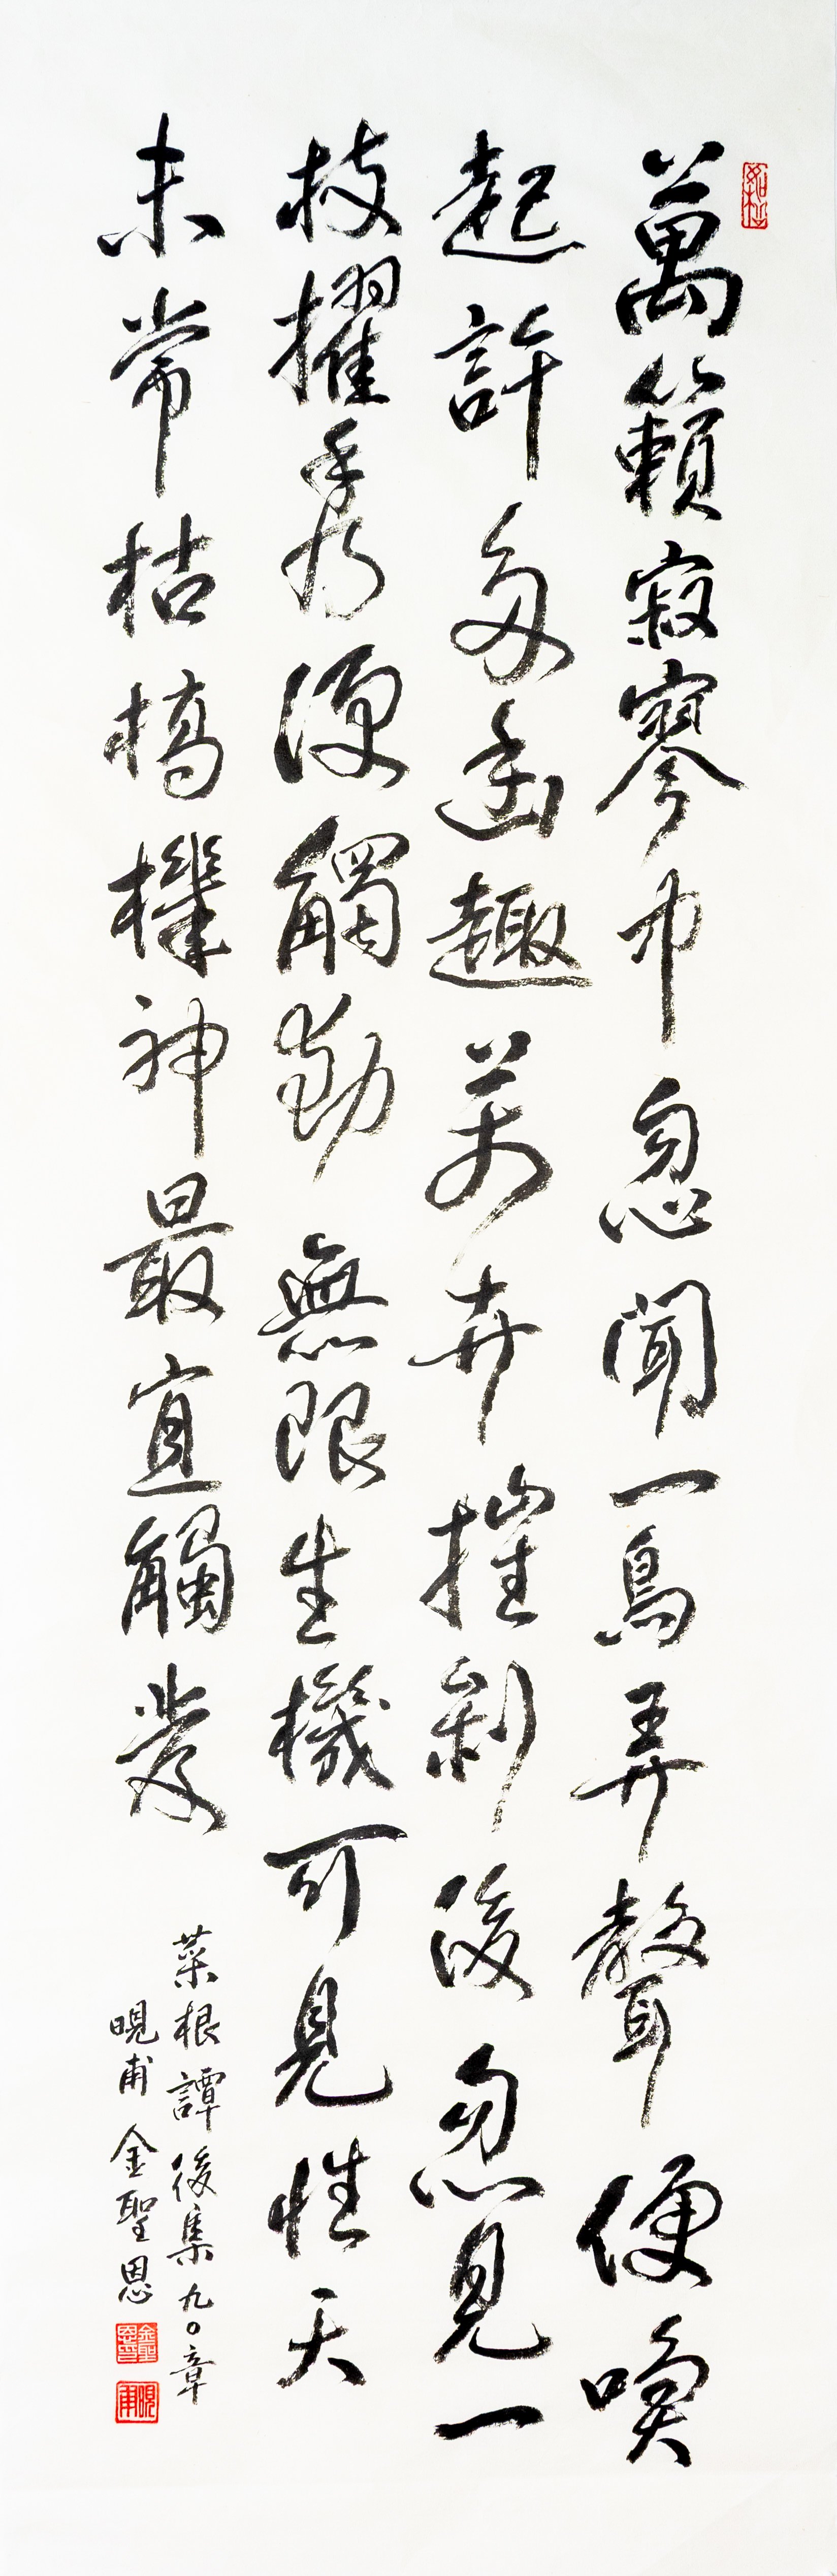 萬籟寂寥中忽聞一鳥弄聲便喚
起許多幽趣萬卉摧剝後忽見一
枝擢秀便觸動無限生機可見性天
未常枯槁機神最宜觸發
菜根譚後集九〇章
晛甫 金聖恩